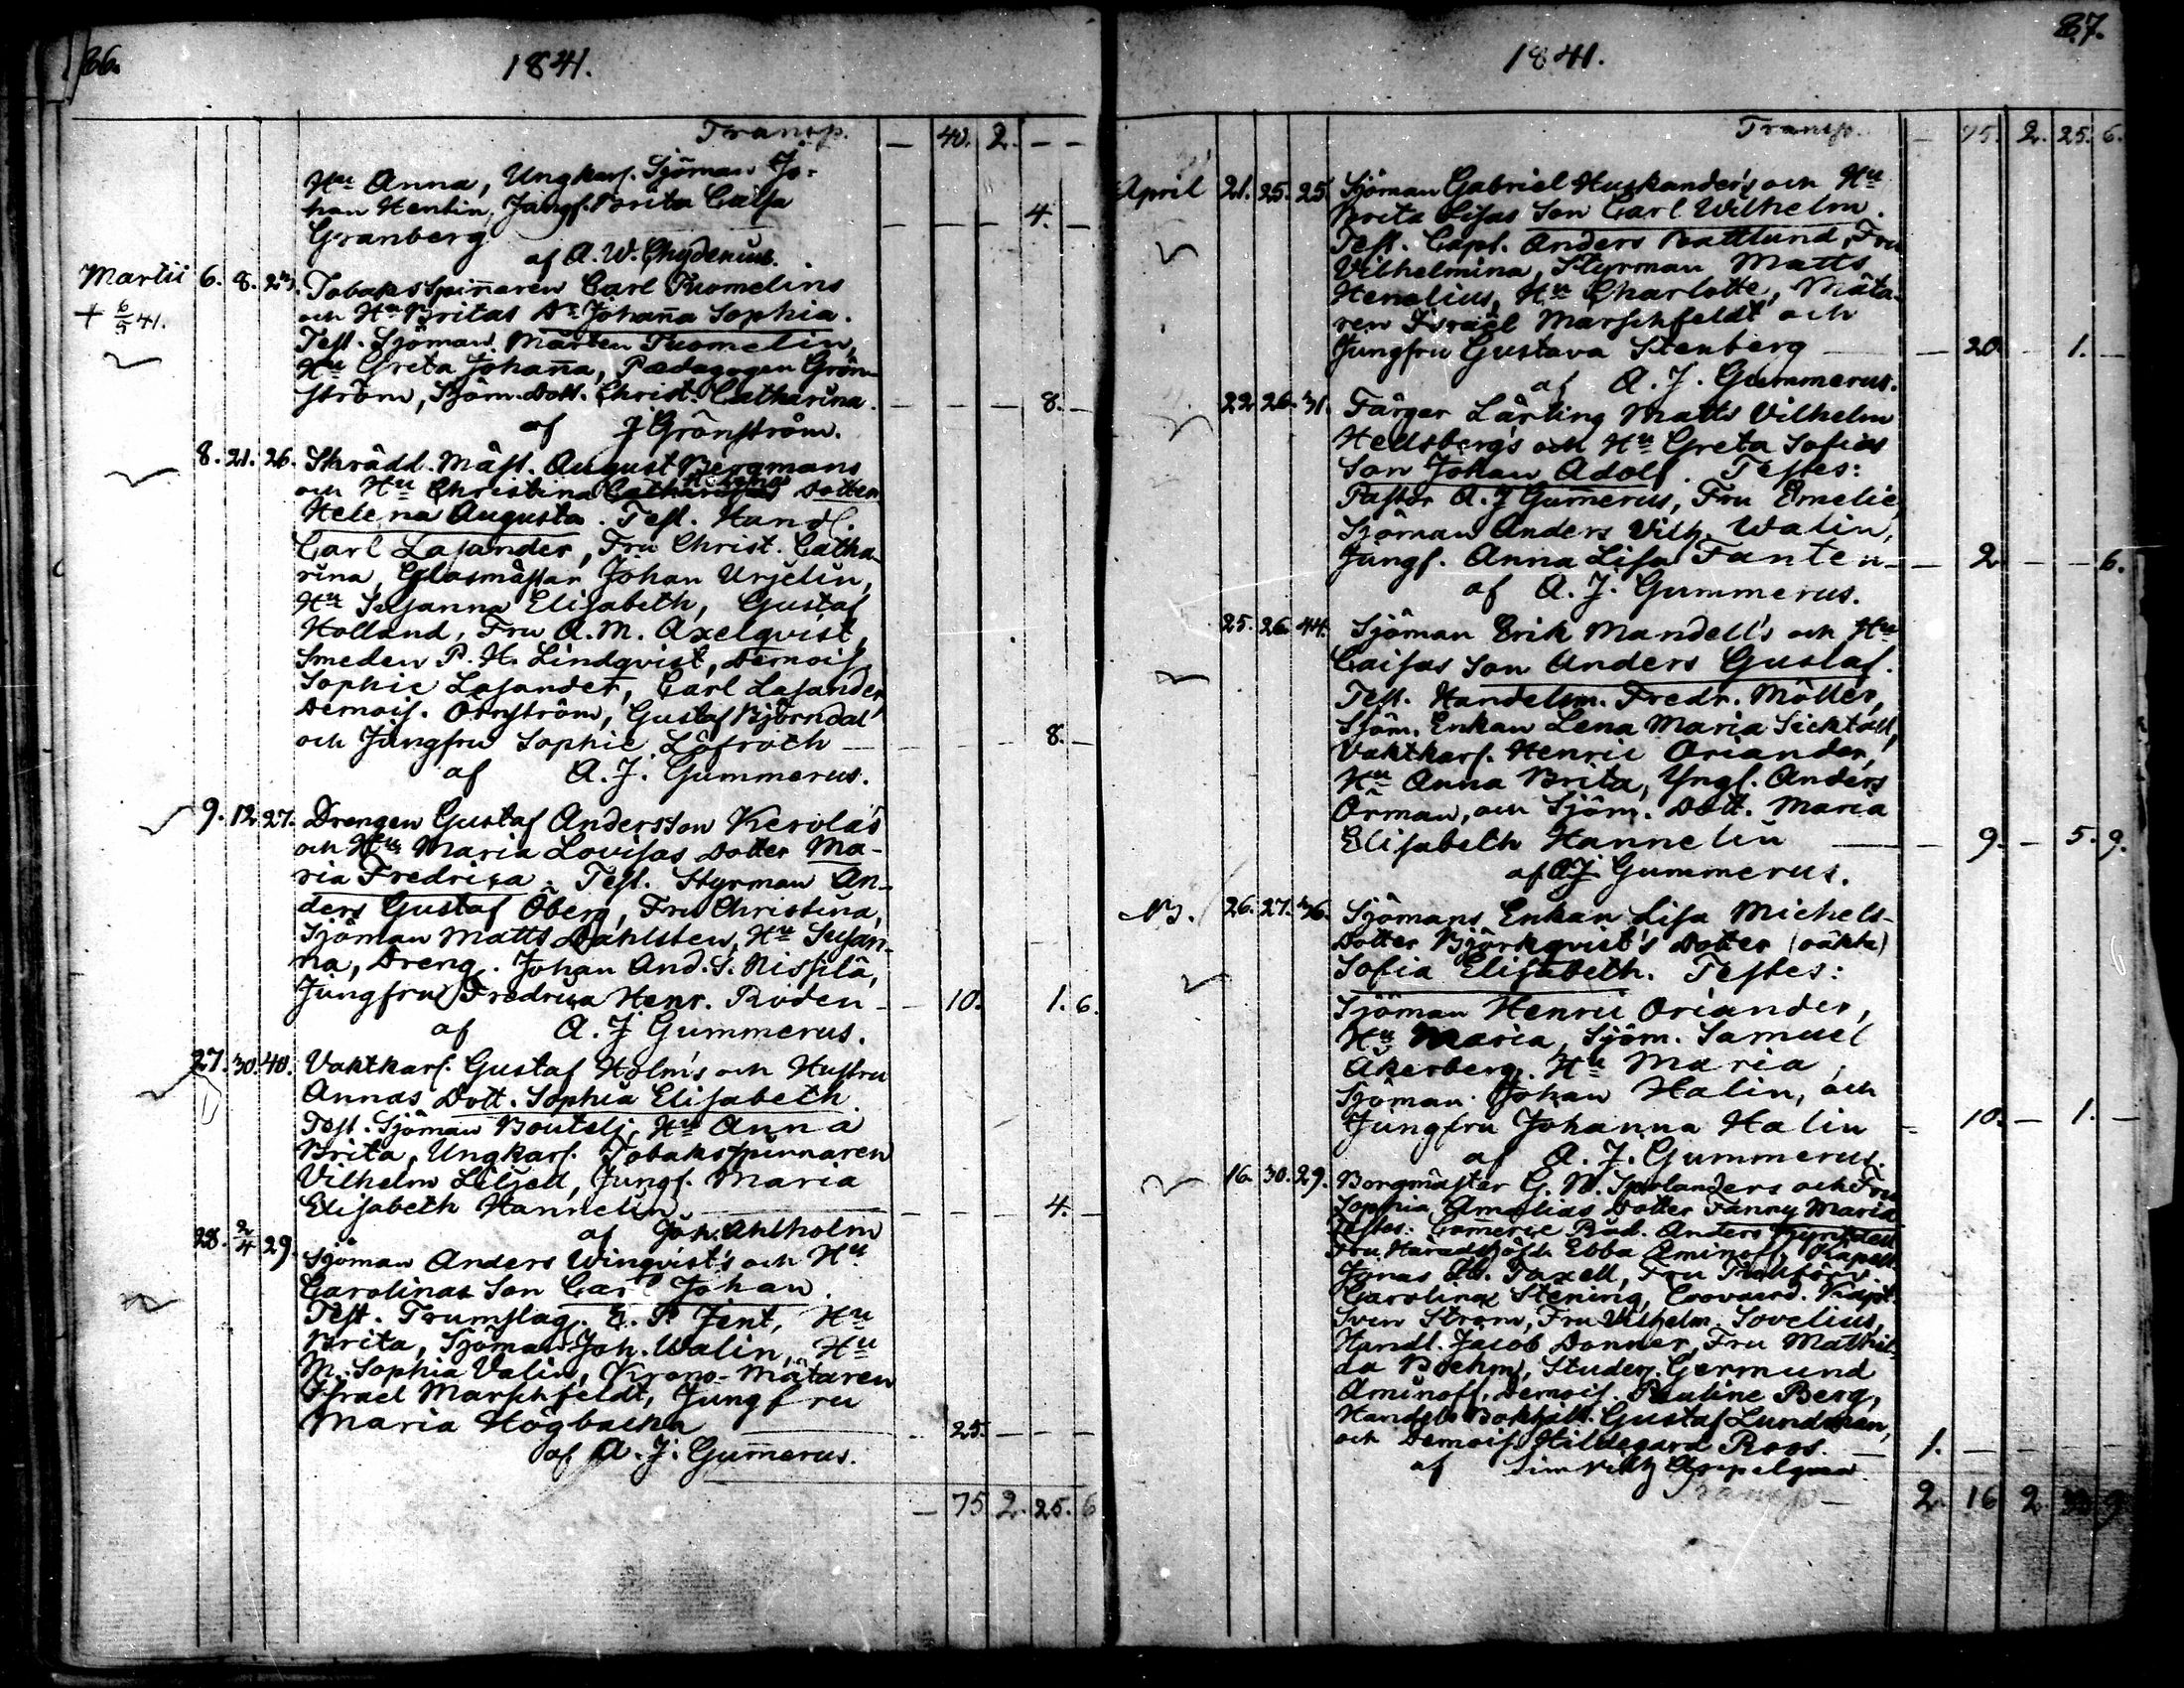 86.
1841.
Transp. — 40. 2. — —
Hu Anna, Ungkarl. Sjöman Jo-
han Hentin, Jungf. Brita Caisa
Granberg — — — 4. —
af A. W. Chydenius.
Martii 6. 8. 23. Tobaksspin̄aren Carl Tuomelins
+ 6/5 41. och Hu Britas Dr Johan̄a Sophia.
Test. Sjöman Mårten Tuomelin,
Hu Greta Johan̄a, Pædagogen Grön-
ström, Sjöm. Dott. Christ. Catharina. — — — 8. —
af J Grönström.
8. 21. 26. Skrädd. Mäst. August Bergmans
och Hu Christina Helenas Dotter
Helena Augusta. Test. Handl.
Carl Lasander, Fru Christ. Catha-
rina, Glasmästar Johan Urjelin,
Hu Susanna Elisabeth, Gustaf
Holland, Fru A. M. Axelqvist,
Smeden P. H. Lindqvist, Demois.
Sophie Lasander, Carl Lasander
Demois. Örnström, Gustaf Björndal
och Jungfru Sophie Löfroth — — — 8. —
af A. J. Gummerus.
9. 12. 27. Drengen Gustaf Andersson Kerola's
och Hus Maria Lovisas Dotter Ma-
ria Fredrica. Test. Styrman An-
ders Gustaf Öberg, Fru Christina,
Sjöman Matts Dahlsten, Hu Susan-
na, Dreng. Johan And. S. Nissilä,
Jungfru Fredrica Henr. Roden — 10. 1. 6.
af A. J Gummerus.
27. 30. 40. Vaktkarl. Gustaf Holm's och Hustru
Annas Dott. Sophia Elisabeth.
Test. Sjöman Boutelj, Hu Anna
Brita, Ungkarl. Tobaksspinnaren
Vilhelm Liljell, Jungf. Maria
Elisabeth Hannelin. — — — 4. —
af Joh. Ahlholm
28. 2/4 29. Sjöman Anders Winqvist's och Hu
Carolinas Son Carl Johan.
Test. Trumslag. E. P. Jent, Hu
Brita, Sjöman Joh. Walin, Hu
M. Sophia Valin, Krono-Mätaren
Israel Marschfeldt, Jungfru
Maria Högbacka — 25. — — —
af A. J. Gum̄erus.
— 75 2. 25. 6
87.
1841.
Transp. — 75. 2. 25. 6.
April 21. 25. 25. Sjöman Gabriel Huskander's och Hu
Brita Lisas Son Carl Wilhelm.
Test. Capt. Anders Battlund, Fru
Vilhelmina, Styrman Matts
Henelius, Hu Charlotte, Mäta-
ren Israël Marschfeldt och
Jungfru Gustava Stenberg — 20 — 1. —
af A. J. Gummerus.
22 26. 31. Färger Lärling Matts Vilhelm
Hellsberg's och Hu Greta Sofias
Son Johan Adolf. Testes:
Pastor A. J Gum̄erus, Fru Emelie,
Sjöman Anders Vilh. Walin,
Jungf. Anna Lisa Fanten — 2 — — 6.
af A. J. Gummerus.
25. 26. 44. Sjöman Erik Mandell's och Hu
Caisas Son Anders Gustaf.
Test. Handelsm. Fredr. Möller,
Sjöm. Enkan Lena Maria Sicktäll,
Vaktkarl. Henric Oriander,
Hu Anna Brita, Yngl. Anders
Örman, och Sjöm. Dott. Maria
Elisabeth Hannelin — — 9. — 5. 9.
af A J Gummerus.
26. 27. 36. Sjömans Enkan Lisa Michels-
Dotter Björkqvist's Dotter (oäkta)
Sofia Elisabeth. Testes:
Sjöman Henric Oriander,
Hu Maria, Sjöm. Samuel
Åkerberg, Hu Maria,
Sjöman Johan Halin, och
Jungfru Johanna Halin — 10. — 1. —
af A. J. Gummerus.
16. 30. 29. Borgmäster G. W. och Fru
Sophia Amalias Dotter Fanny Maria
Testes: Com̄erce Råd. Anders
Fru Häradshöfd. Ebba Aminoff, Kapell.
Jonas Taxell, Fru
Carolina Stening, Kapt.
Sven Ström, Fru Vilhelm. Sovelius,
Handl. Jacob Donner, Fru Mathil-
da Boehm, Studer. Germund
Aminoff, Demois. Pauline Berg,
Handels Bokhåll. Gustaf Lundman,
och Demois. Hildegard Roos. — 1. — — —
af
Transp — 2. 16 2. 9